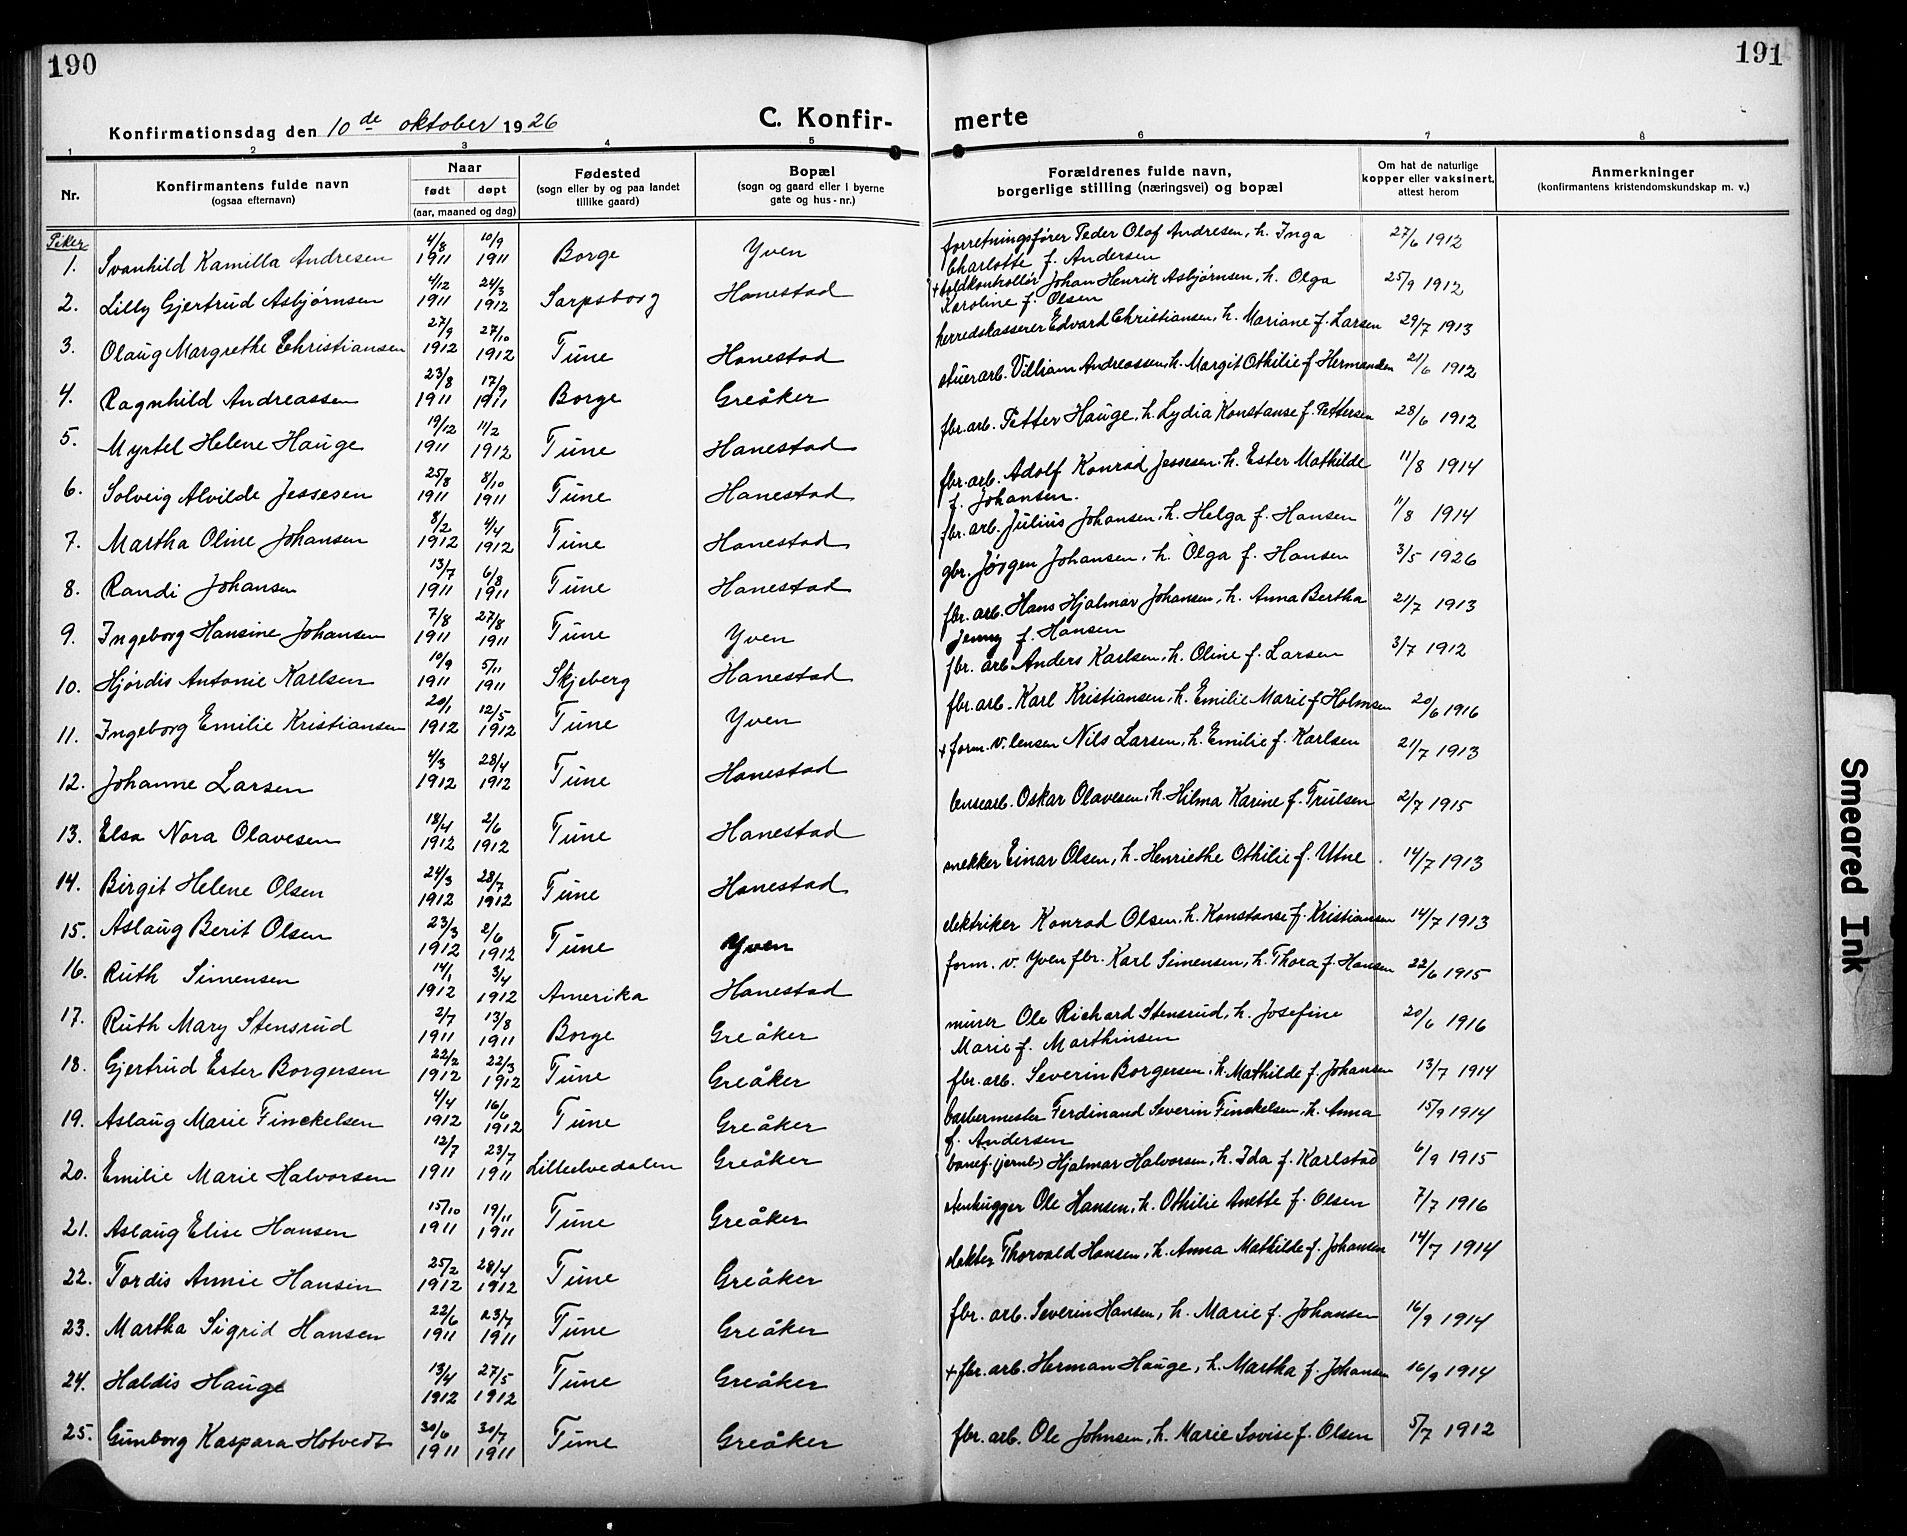 190
191
Konfirmationsdag den 10de oktober 1926
C. Konfir-
merte
1 2 3 4 5 6 7 8
Nr.
Konfirmantens fulde navn
(ogsaa efternavn)
Naar
født døpt
(aar, maaned og dag)
Fødested
(sogn eller by og paa landet
tillike gaard)
Bopæl
(sogn og gaard eller i byerne
gate og hus-nr.)
Forældrenes fulde navn,
borgerlige stilling (næringsvei) og bopæl
Om hat de naturlige
kopper eller vaksinert,
attest herom
Anmerkninger
(konfirmantens kristendomskundskap m. v.)
Piker
1. Svanhild Kamilla Andresen 4/8 1911 10/9 1911 Borge Yven forretningsfører Peder Olaf Andresen, h. Inga 27/6 1912
Charlotte f. Andersen
2. Lilly Gjertrud Asbjørnsen 4/12 1911 24/3 1912 Sarpsborg Hanestad + toldkontrollør Johan Henrik Asbjørnsen, h. Olga 25/9 1912
Karoline f. Olsen
3. Olaug Margrethe Christiansen 27/9 1912 27/10 1912 Tune Hanestad herredskasserer Edvard Christiansen, h. Mariane f. Larsen 29/7 1913
4. Ragnhild Andreassen 23/8 1911 17/9 1911 Borge Greåker stuerarb. Villiam Andreassen, h. Margit Othilie f. Hermansen 21/6 1912
5. Myrtel Helene Hauge 19/12 1911 11/2 1912 Tune Hanestad fbr. arb. Petter Hauge, h. Lydia Konstanse f. Pettersen 28/6 1912
6. Solveig Alvilde Jessesen 25/8 1911 8/10 1911 Tune Hanestad fbr. arb. Adolf Konrad Jessesen, h. Ester Mathilde 11/8 1914
f. Johansen.
7. Martha Oline Johansen 8/2 1912 4/4 1912 Tune Hanestad fbr. arb. Julius Johansen, h. Helga f. Hansen 11/8 1914
8. Randi Johansen 13/7 1911 6/8 1911 Tune Hanestad gbr. Jørgen Johansen, h. Olga f. Hansen 3/5 1926
9. Ingeborg Hansine Johansen 7/8 1911 27/8 1911 Tune Yven fbr. arb. Hans Hjalmar Johansen, h. Anna Bertha 21/7 1913
Jenny f. Hansen
10. Hjørdis Antonie Karlsen 10/9 1911 5/11 1911 Skjeberg Hanestad fbr. arb. Anders Karlsen, h. Oline f. Larsen 3/7 1912
11. Ingeborg Emilie Kristiansen 20/1 1912 12/5 1912 Tune Yven fbr. arb. Karl Kristiansen, h. Emilie Marie f. Holmsen 20/6 1916
12. Johanne Larsen 4/3 1912 28/4 1912 Tune Hanestad + form. v. lensen Nils Larsen, h. Emilie f. Karlsen 21/7 1913
13. Elsa Nora Olavesen 18/4 1912 2/6 1912 Tune Hanestad lensearb. Oskar Olavesen, h. Hilma Karine f. Trulsen 2/7 1915
14. Birgit Helene Olsen 24/3 1912 28/7 1912 Tune Hanestad snekker Einar Olsen, h. Henriethe Othilie f. Utne. 14/7 1913
15. Aslaug Berit Olsen 23/3 1912 2/6 1912 Tune Yven elektriker Konrad Olsen, h. Konstanse f. Kristiansen 14/7 1913
16. Ruth Simensen 14/1 1912 3/4 1912 Amerika Hanestad form. v. Yven fbr. Karl Simensen, h. Thora f. Hansen 22/6 1915
17. Ruth Mary Stensrud 2/7 1911 13/8 1911 Borge Greåker murer Ole Richard Stensrud, h. Josefine 20/6 1916
Marie f. Marthinsen
18. Gjertrud Ester Borgersen 22/2 1912 22/3 1912 Tune Greåker fbr. arb. Severin Borgersen, h. Mathilde f. Johansen 13/7 1914
19. Aslaug Marie Finckelsen 4/4 1912 16/6 1912 Tune Greåker barbermester Ferdinand Severin Finckelsen, h. Anna 15/9 1914
f. Andersen
20. Emilie Marie Halvorsen 12/7 1911 23/7 1911 Lilleelvedalen Greåker banef. (jernb) Hjalmar Halvorsen, h. Ida f. Karlstad 6/9 1915
21. Aslaug Elise Hansen 15/10 1911 19/11 1911 Tune Greåker stenhugger Ole Hansen, h. Othilie Anette f. Olsen 7/7 1916
22. Tordis Annie Hansen 25/2 1912 28/4 1912 Tune Greåker Thorvald Hansen, h. Anna Mathilde f. Johansen 14/7 1914
23. Martha Sigrid Hansen 22/6 1911 23/7 1911 Tune Greåker fbr. arb. Severin Hansen, h. Marie f. Johansen 16/9 1914
24. Haldis Hauge 13/4 1912 27/5 1912 Tune Greåker + fbr. arb. Herman Hauge, h. Martha f. Johansen 16/9 1914
25. Gunborg Kaspara Hotvedt 30/6 1911 30/7 1911 Tune Greåker fbr. arb. Ole Johnsen, h. Marie Lovise f. Olsen 5/7 1912
Smeared Ink